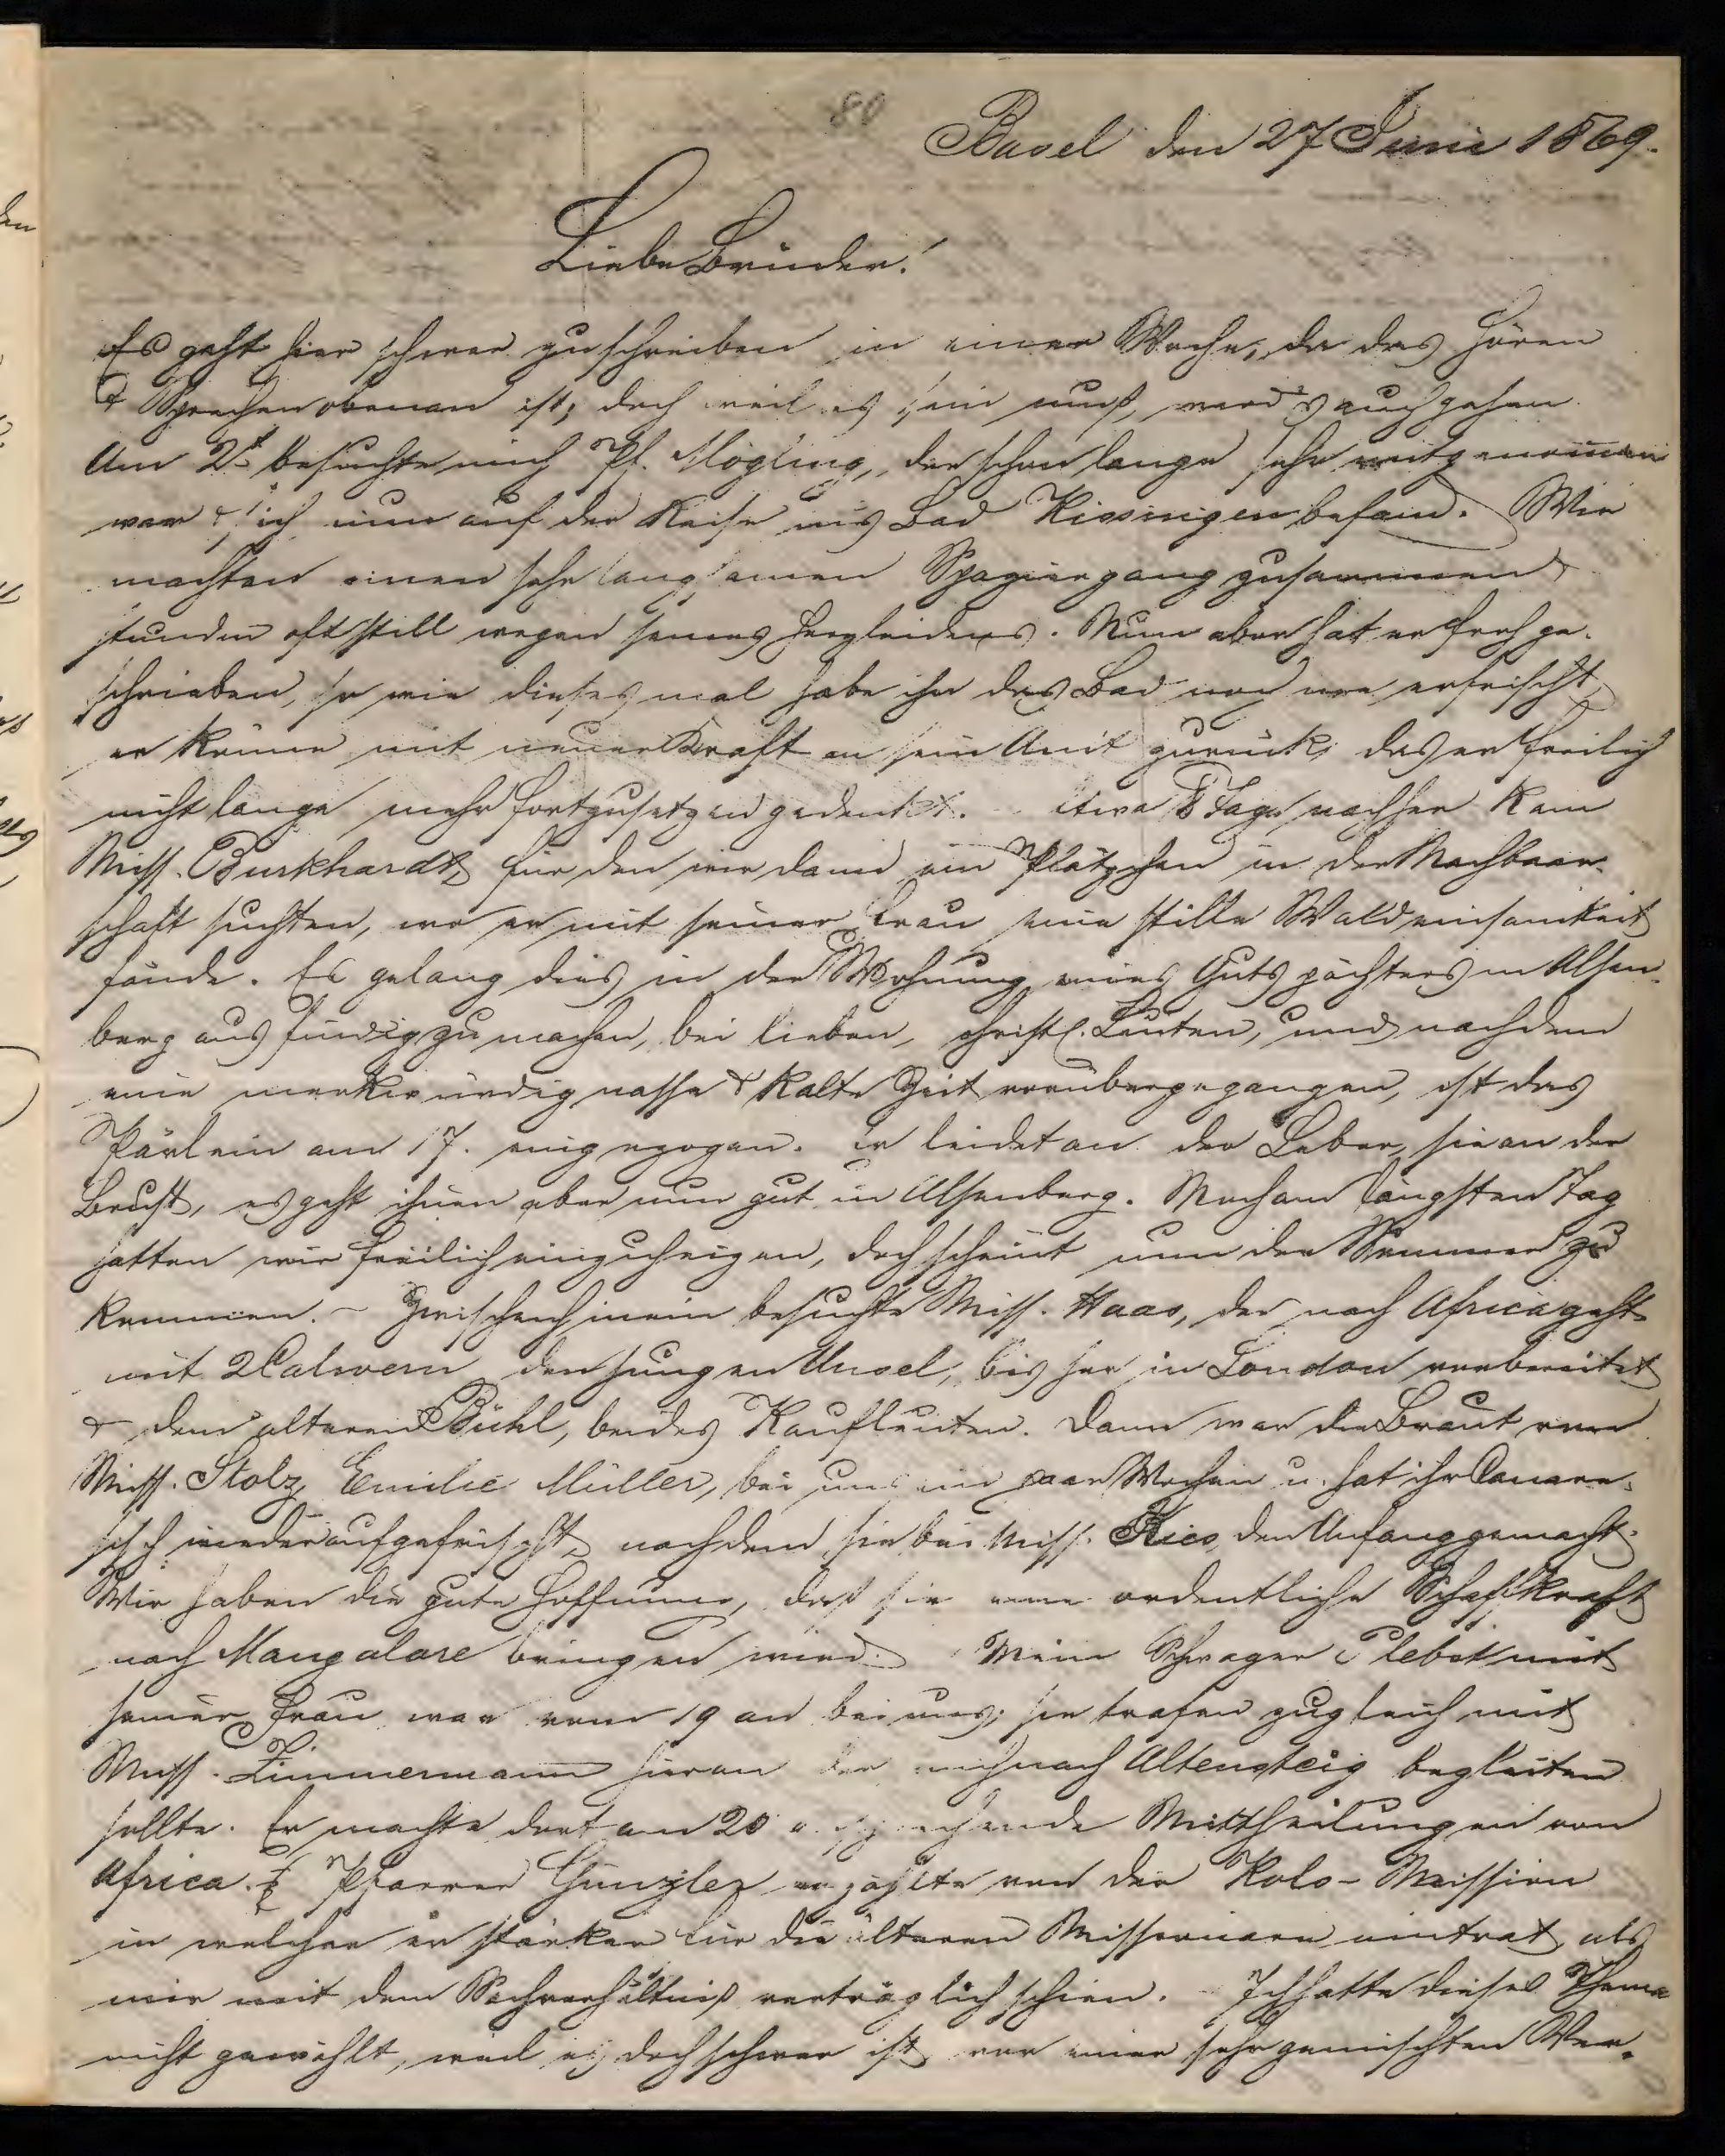 80
Basel den 27 Juni 1869.
Liebe Brüder!
Es geht hier schwer zu schreiben in einer Woche, da das Hören
& Sprechen obenan ist; doch weil es sein muß, wird's auch gehen.
Am 2t besuchte mich Pf. Mögling, der schon lange sehr mitgenommen
war & sich nun auf der Reise ins Bad Kissingen befand. Wir
machten einen sehr langsamen Spaziergang zusammen &
stunden oft still wegen seines Herzleidens. Nun aber hat er froh ge-
schrieben, so wie dieses mal habe ihn das Bad noch nie erfrischt,
er komme mit neuer Kraft an sein Amt zurück, das er freilich
nicht lange mehr fortzusetzen gedenkt. Etwa 8 Tage nachher kam
Miss. Burkhardt, für den wir dann ein Plätzchen in der Nachbaar-
schaft suchten, wo er mit seiner Frau eine stille Waldeinsamkeit
fände. Es gelang dies in der Wohnung eines Gutspächters in Alzen-
berg ausfindig zu machen, bei lieben, christl. Leuten, und nachdem
eine merkwürdig nasse & kalte Zeit vorübergegangen, ist das
Pärlein am 17. eingezogen. Er leidet an der Leber, sie an der
Brust, es geht ihnen aber nun gut in Alzenberg. Noch am längsten Tag
hatten wir freilich einzuheizen, doch scheint nun der Sommer zu
kommen. – Zwischenhinein besuchte Miss. Haas, der nach Africa geht
mit 2 Calwern den jungen Unsel, bisher in London vorbereitet
& dem älteren Bühl, beides Kaufleuten. Dann war die Braut von
Miss. Stolz, Emilie Müller, bei uns ein paar Wochen u. hat ihr Canare-
sisch wieder aufgefrischt, nachdem sie bei Miss. Kies den Anfang gemacht.
Wir haben die gute Hoffnung, daß sie eine ordentliche Schaffkraft
nach Mangalore bringen wird. Mein Schwager Plebst mit
seiner Frau war vom 19 an bei uns; sie trafen zugleich mit
Miss. Zimmermann hier an der mich nach Altensteig begleiten
sollte. Er machte dort am 20 ansprechende Mittheilungen von
Africa. & Pfarrer Gunzler erzählte von der Kols-Mission
in welcher er stärker für die älteren Missionare eintrat, als
mir mit dem Sachverhältniß verträglich schien. – Ich hatte dieses Thema
nicht gewählt, weil es doch schwer ist vor einer sehr gemischten Ver-